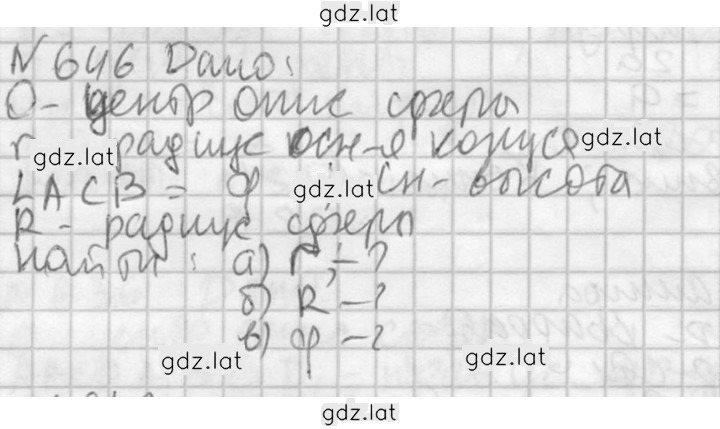 gdz.lat
N 646 Дано:
O - центр опис сферы
r - радиус осн-я конуса gdz.lat
gdz.lat
∠ACB = φ gdz.lat CH - высота
R - радиус сферы
найти: а) r - ?
б) R - ?
в) φ - ?
gdz.lat gdz.lat
gdz.lat